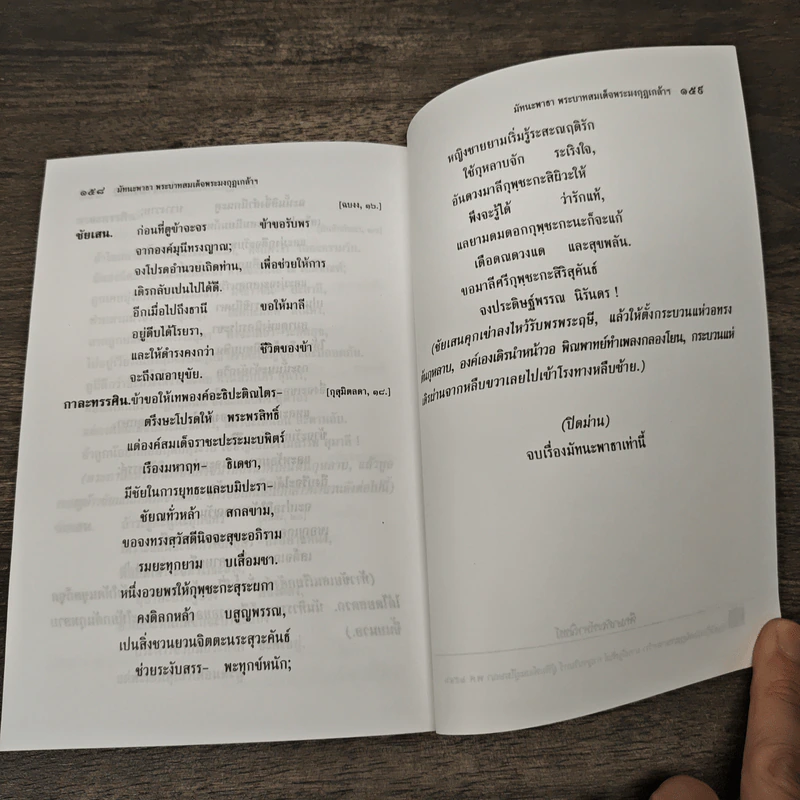 ๑๕๘ มัทนะพาธา พระบาทสมเด็จพระมงกุฎเกล้าฯ
[ฉบงง, ๑๖.]
ชัยเสน. ก่อนที่ตูข้าจะจร ข้าขอรับพร
จากองค์มุนีทรงญาณ;
จงโปรดอำนวยเถิดท่าน, เพื่อช่วยให้การ
เดิรกลับเปนไปได้ดี.
อีกเมื่อไปถึงธานี ขอให้มาลี
อยู่ดีบได้โรยรา,
และให้ดำรงคงกว่า ชีวิตของข้า
จะถึงณอายุขัย.
กาละทรรศิน. ข้าขอให้เทพองค์อะธิปะติณไตร– [กุสุมิตลดา, ๑๘.]
ตรึงษะโปรดให้ พระพรสิทธิ์
แด่องค์สมเด็จราชะปะระมะบพิตร์
เรืองมหาฤท– ธิเดชา,
มีชัยในการยุทธะและบมิปะรา–
ชัยณทั่วหล้า สกลขาม,
ขอจงทรงสฺวัสดีนิจจะสุขะอภิราม
รมยะทุกยาม บเสื่อมซา.
หนึ่งอวยพรให้กุพฺชะกะสุระผกา
คงดิลกหล้า บสูญพรรณ,
เปนสิ่งชวนยวนจิตตะนระสุวะคันธ์
ช่วยระงับสรร– พะทุกข์หนัก;
มัทนะพาธา พระบาทสมเด็จพระมงกุฎเกล้าฯ ๑๕๙
หญิงชายยามเริ่มรู้ระสะณฤติรัก
ใช้กุหลาบจัก ระเริงใจ,
อันดวงมาลีกุพฺชะกะสินิวะให้
พึงจะรู้ได้ ว่ารักแท้,
แลยามดมดอกกุพฺชะกะนะก็จะแก้
เดือดณดวงแด และสุขพลัน.
ขอมาลีศรีกุพฺชะกะสิริสุคันธ์
จงประดิษฐ์พรรณ นิรันดร !
(ชัยเสนคุกเข่าลงไหว้รับพรพระฤษี, แล้วให้ตั้งกระบวนแห่วอทรง
ต้นกุหลาบ, องค์เองเดิรนำหน้าวอ พิณพาทย์ทำเพลงกลองโยน, กระบวนแห่
เดิรผ่านจากหลืบขวาเลยไปเข้าโรงทางหลืบซ้าย.)
(ปิดม่าน)
จบเรื่องมัทนะพาธาเท่านี้